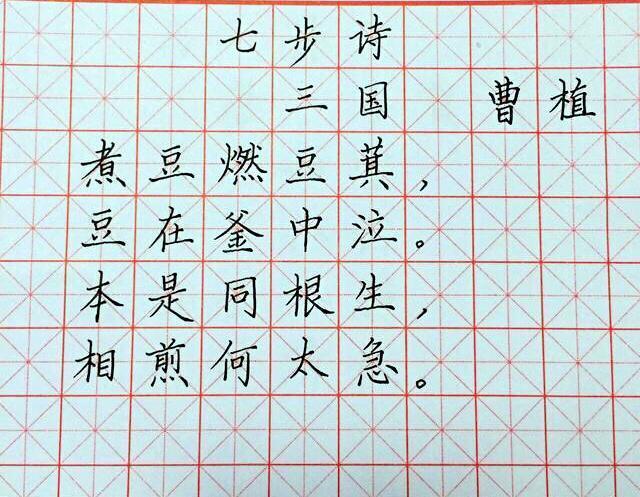 七步诗
三国 曹植
煮豆燃豆萁，
豆在釜中泣。
本是同根生，
相煎何太急。